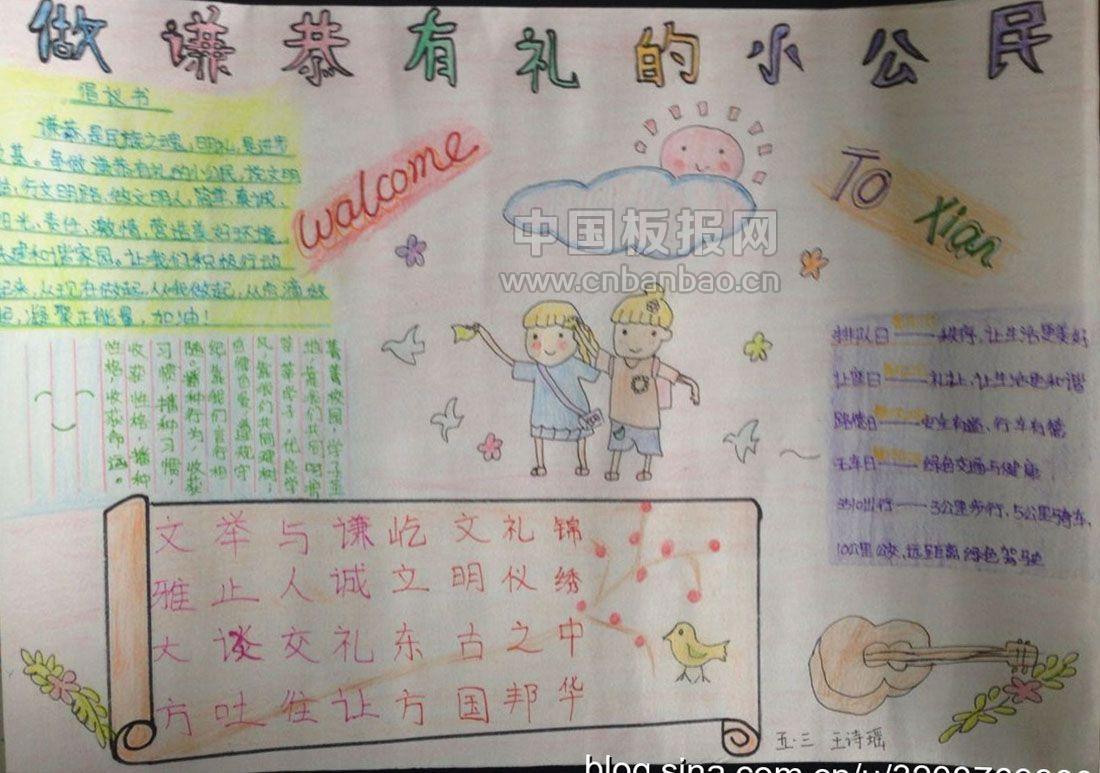 做谦恭有礼的小公民
倡议书
谦恭,是民族之魂,明礼,是进步
基。争做谦恭有礼的小公民,
行文明路,做文明人,
阳光、责任、激情,营造美好环境,
建和谐家园。让我们积极行动
起来,从现在做起,从我做起,从点滴做
起,凝聚正能量,加油!
walcome
To
Xian
中国板报网
www.cnbanbao.cn
菁菁校园,学子
莘莘学子,优良学
风,需我们共同建树,
遵规守
纪靠我们言行相
随。播种行为,收获
习惯;播种习惯,
收获性格;播种
性格,收获命运。
排队日——秩序,让生活更美好
让座日——礼让,让生活更和谐
路德日——安全有道、行车有德
无车日——绿色交通与健康
3510出行——3公里步行、5公里骑车、
10公里公交、远距离绿色驾驶
锦绣中华
礼仪之邦
文明古国
屹立东方
谦诚礼让
与人交往
举止谈吐
文雅大方
五·三 王诗瑶